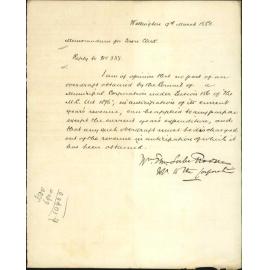 Wellington 9th March 1880
Memorandum for Town Clerk
Reply to No 337
I am of opinion that no part of an
overdraft obtained by the Council of a
Municipal Corporation under Section 150 of the
M.C. Act 1876, in anticipation of its current
year's revenue, can be applied to any purpose
except the current year's expenditure, and
that any such overdraft must be discharged
out of the revenue in anticipation of which it
has been obtained.
Wm